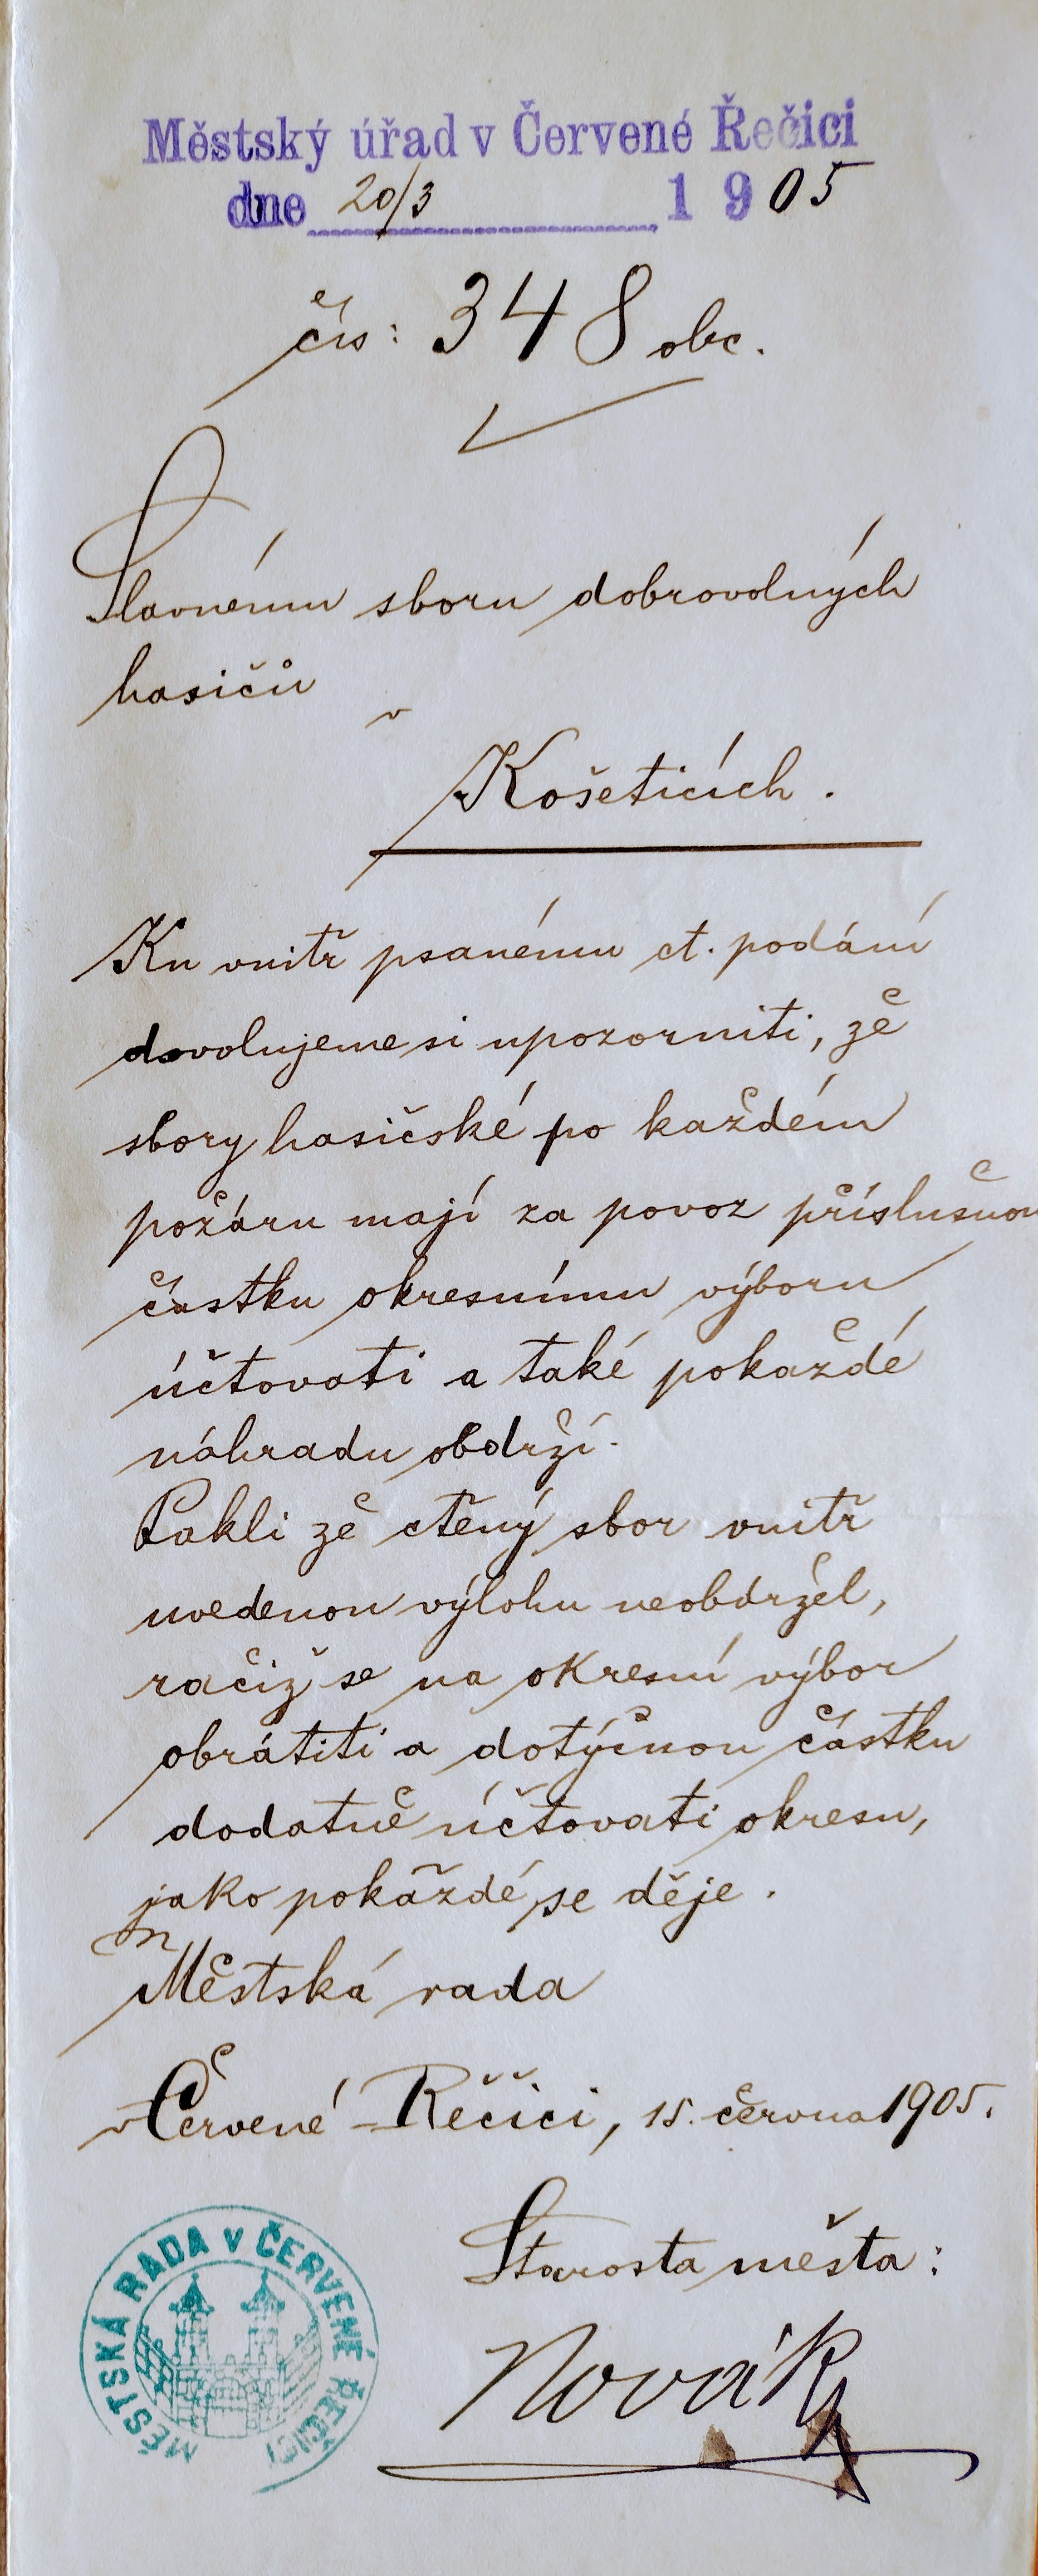 Městský úřad v Červené Řečici
dne 20/3 1905
čís: 348 obc.
Slavnému sboru dobrovolných
hasičů
v
Košeticích.
Ku vnitř psanému ct. podání
dovolujeme si upozorniti, že
sbory hasičské po každém
požáru mají za povoz příslušnou
částku okresnímu výboru
účtovati a také pokaždé
náhradu obdrží.
Pakli že ctěný sbor vnitř
uvedenou výlohu neobdržel,
račiž se na okresní výbor
obrátiti a dotýčnou částku
dodatně účtovati okresu,
jako pokaždé se děje.
Městská rada
v Červené Řečici, 15. června 1905.
Starosta města:
Novák
MĚSTSKÁ RADA V ČERVENÉ ŘEČICI